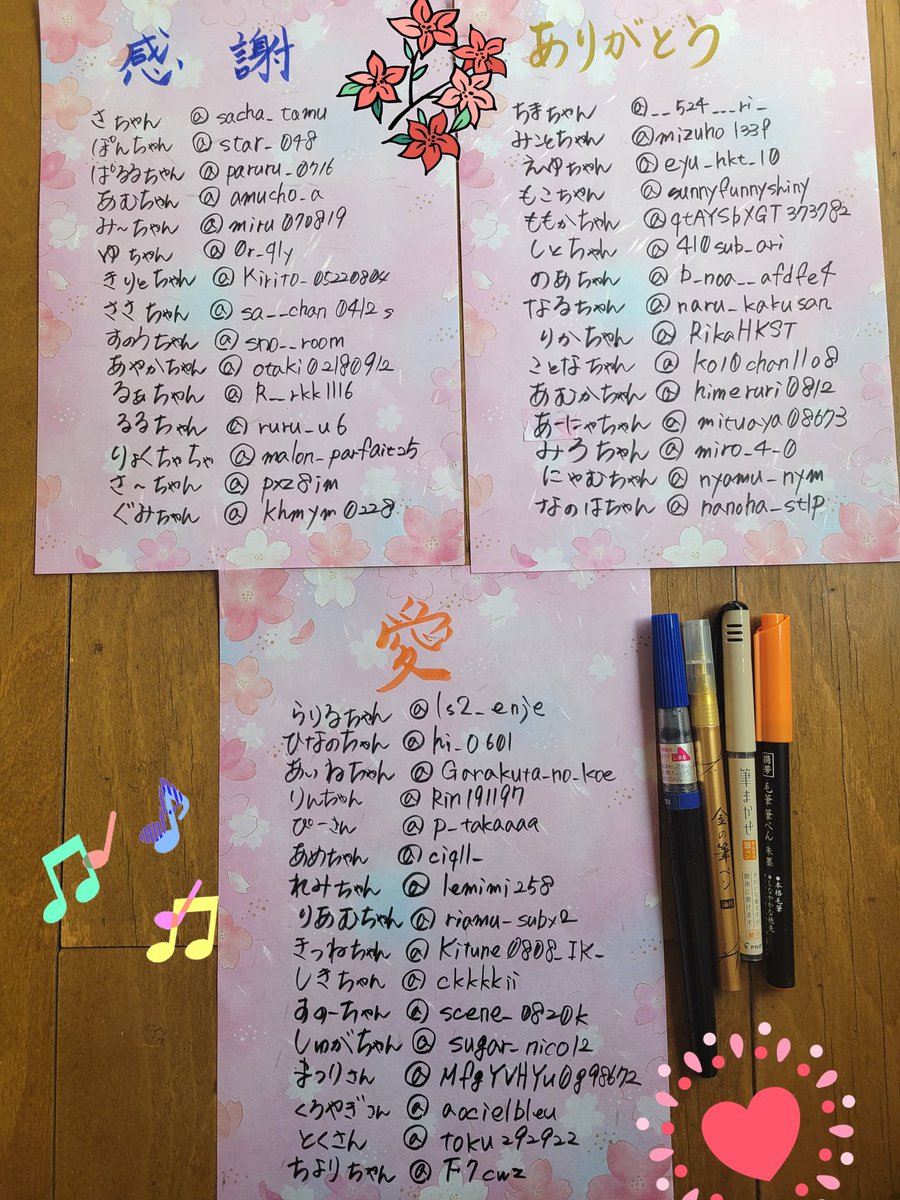 感謝
さちゃん @ sacha_tamu
ぽんちゃん @ star_048
ぱるるちゃん @ paruru_0716
あむちゃん @ amucho_a
み〜ちゃん @ miru070819
ゆちゃん @ 0r_qly
きりとちゃん @ Kirito_05220804
ささちゃん @ sa__chan0412s
すのうちゃん @ sno__room
あやかちゃん @ otaki02180912
るぁちゃん @ R__rkk1116
るるちゃん @ ruru_u6
りょくちゃちゃ @ malon_parfait25
さ〜ちゃん @ pxz8im
ぐみちゃん @ khmym0228
ありがとう
ちまちゃん @__524___ri_
みんとちゃん @mizuho1339
えゆちゃん @ eyu_hkt_10
もこちゃん @ sunnyfunnyshiny
ももかちゃん @qtAYSbXGT373782
しとちゃん @ 410sub_ari
のあちゃん @ b_noa__afdfe4
なるちゃん @ naru_kakusan
りかちゃん @ RikaHKST
ことなちゃん @ ko10chan1108
あむかちゃん @ himeruri0812
あーにゃちゃん @ mituaya08673
みろちゃん @ miro_4_0
にゃむちゃん @ nyamu_nym
なのはちゃん @ nanoha_stlp
愛
らりるちゃん @ ls2_enje
ひなのちゃん @ hi_0601
あいねちゃん @ Garakuta_no_koe
りんちゃん @ Rin191197
ぴーさん @ p_takaaaa
あめちゃん @ciqll_
れみちゃん @ lemimi258
りあむちゃん @ riamu_subx2
きつねちゃん @ Kitune0808_IK_
しきちゃん @ ckkkkii
すのーちゃん @ scene_0820k
しゅがちゃん @ sugar_nico12
まつりさん @ MfgYVHYu0g98672
くろやぎさん @ aoxielbleu
とくさん @ toku292922
ちよりちゃん @ 下7cwz
金の筆ペン
筆まかせ
筆ペン
簡単に書けます
PILOT
携帯 毛筆 筆ぺん 朱墨
●本格毛筆